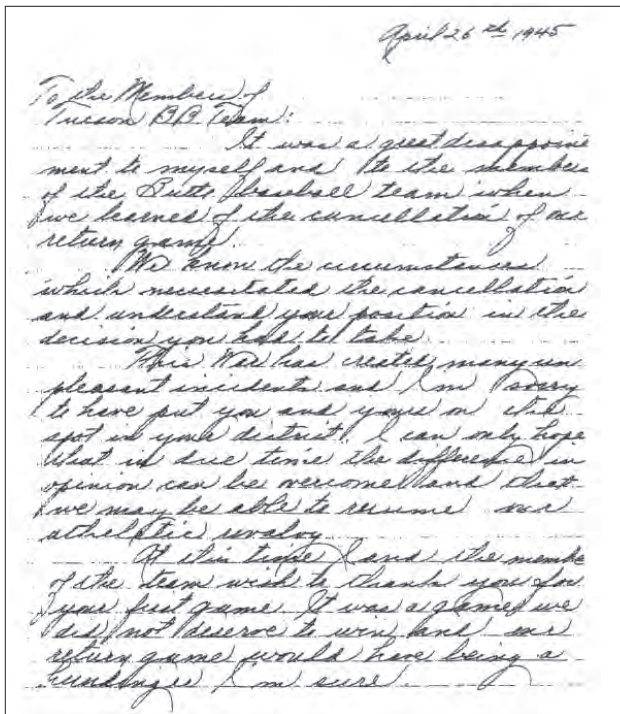 April 26th 1945
To the Members of
Tucson BB Team:
It was a great disappoint
ment to myself and to the members
of the Butte baseball team when
we learned of the cancellation of our
return game.
We know the circumstances
which necessitated the cancellation
and understand your position in the
decision you had to take.
This War has created many un
pleasant incidents and I'm sorry
to have put you and yours on the
spot in your district. I can only hope
that in due time the difference in
opinion can be overcome and that
we may be able to resume our
athletic rivalry.
At this time I and the members
of the team wish to thank you for
your first game. It was a game we
did not deserve to win and our
return game would have being a
humdinger I'm sure.